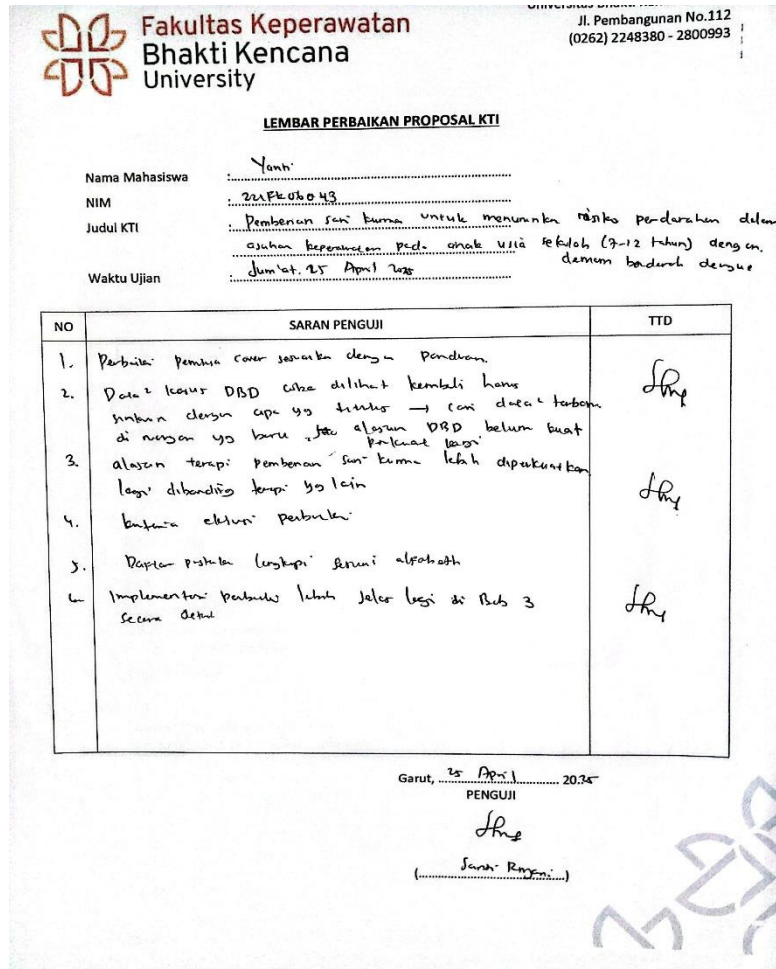 Fakultas Keperawatan
Bhakti Kencana
University
Jl. Pembangunan No.112
(0262) 2248380 - 2800993
LEMBAR PERBAIKAN PROPOSAL KTI
Nama Mahasiswa : Yanti
NIM :
Judul KTI : Pemberian sari kurma untuk menurunkan risiko perdarahan dalam
asuhan keperawatan pada anak usia sekolah (7-12 tahun) dengan
demam berdarah dengue
Waktu Ujian : Jum'at, 25 April 2025
NO SARAN PENGUJI TTD
1. Perbaiki cover sesuaikan dengan panduan.
2. Data2 kasus DBD coba dilihat kembali harus
sinkron dengan apa yg → cari data2 terbaru
di yg baru, alasan DBD belum kuat
perkuat lagi
3. alasan terapi pemberian sari kurma lebih diperkuatkan
lagi dibanding terapi yg lain
4. kriteria eklusi perbaiki
5. Daftar pustaka lengkapi sesuai alfabeth
6 Implementasi perbaiki lebih jelas lagi di Bab 3
secara detail
Garut, 25 April 2025
PENGUJI
(Santi)